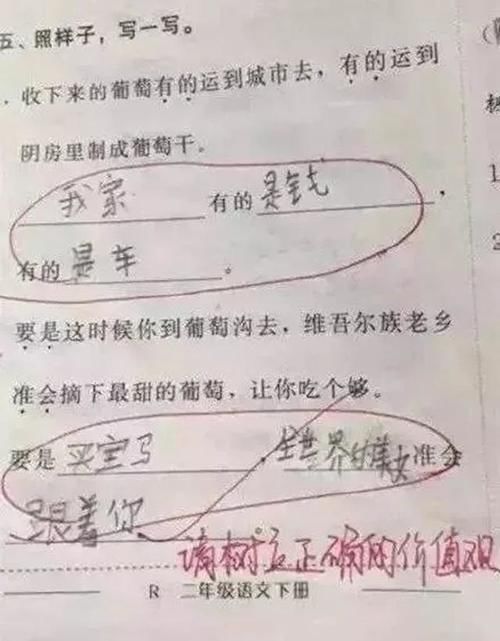 五、照样子，写一写。
. 收下来的葡萄有的运到城市去，有的运到
阴房里制成葡萄干。
我家 有的 是钱，
有的 是车 。
要是这时候你到葡萄沟去，维吾尔族老乡
准会摘下最甜的葡萄，让你吃个够。
要是 买宝马 ，全世界的美女 准会
跟着你
请树立正确的价值观
R 二年级语文下册
1
2